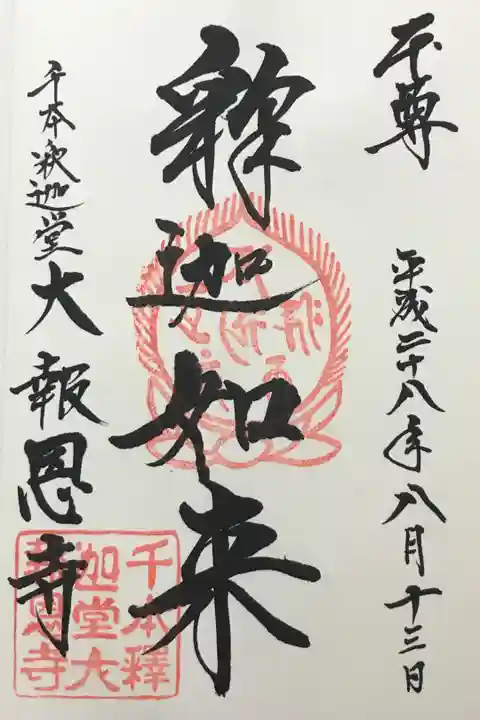 本尊
平成二十八年八月十三日
釋迦如来
千本釈迦堂大報恩寺
千本釋
迦堂大
報恩寺